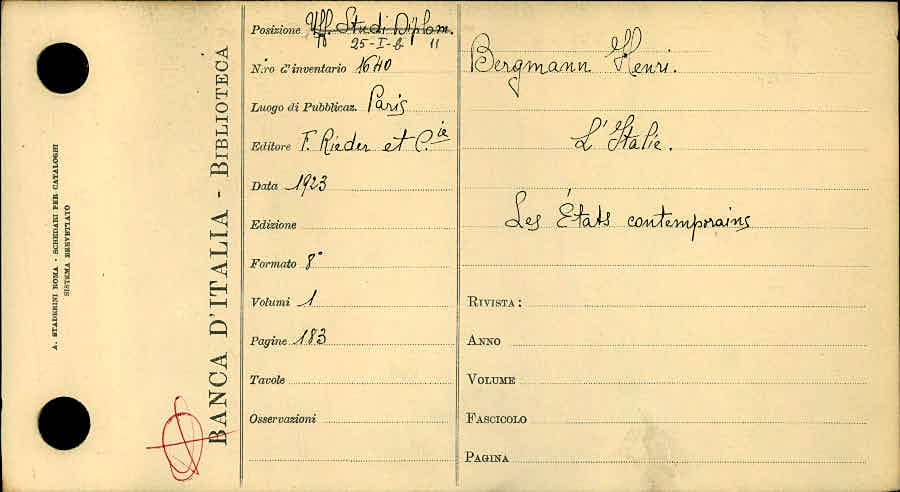 A. STADERINI ROMA - SCHEDARI PER CATALOGHI
SISTEMA BREVETTATO
BANCA D'ITALIA - BIBLIOTECA
Posizione Uff. Studi Diplom.
25-I-b 11
N.ro d'inventario 1640
Luogo di Pubblicaz. Paris
Editore F. Rieder et C.ie
Data 1923
Edizione
Formato 8°
Volumi 1
Pagine 183
Tavole
Osservazioni
Bergmann Henri.
L'Italie.
Les États contemporains
RIVISTA:
ANNO
VOLUME
FASCICOLO
PAGINA